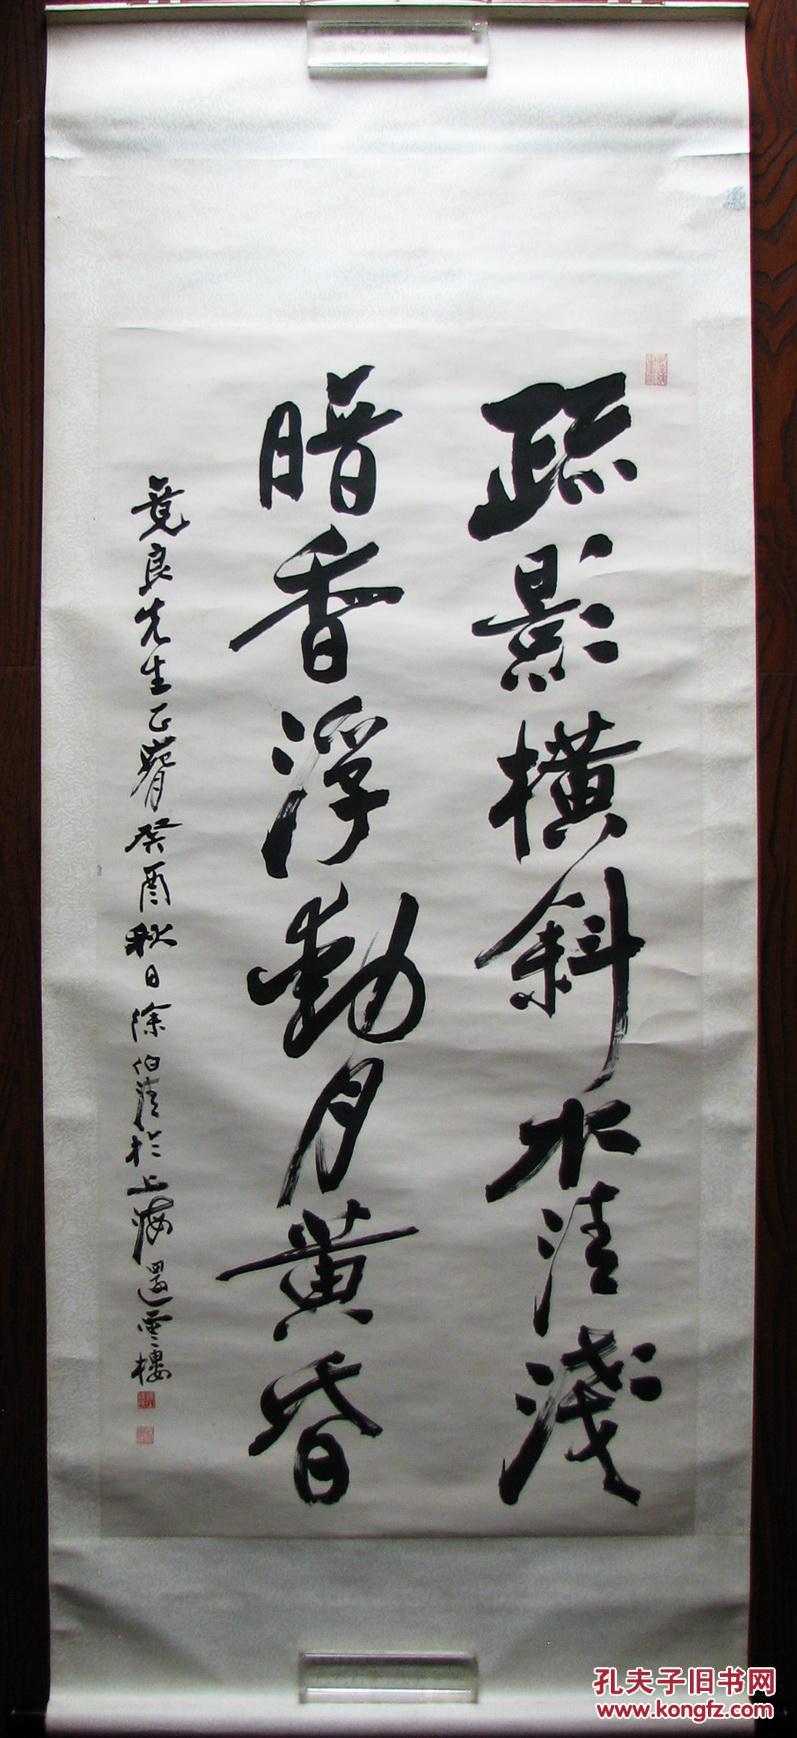 疏影橫斜水清淺
暗香浮動月黃昏
竟良先生正腕癸酉秋日徐伯清於上海還雲樓
孔夫子旧书网
www.kongfz.com